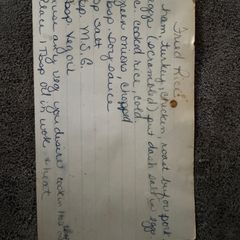 Fried Rice
ham, turkey, chicken, roast beef or pork
eggs (scrambled) put dash salt in eggs
c. cooked rice, cold
green onions, chopped
Tbsp soy sauce
tsp salt
tsp. M.S.G.
Tbsp Veg oil
use any veg you desire
Place 1 Tbsp oil in wok & heat